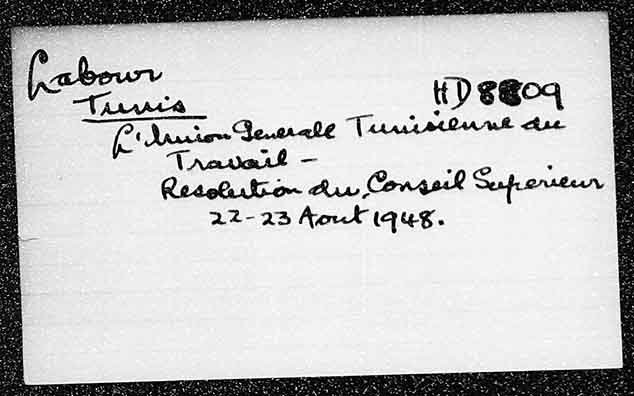 Labour
Tunis
HD8809
L'Union Generale Tunisienne du
Travail -
Resolution du Conseil Superieur
22-23 Aout 1948.